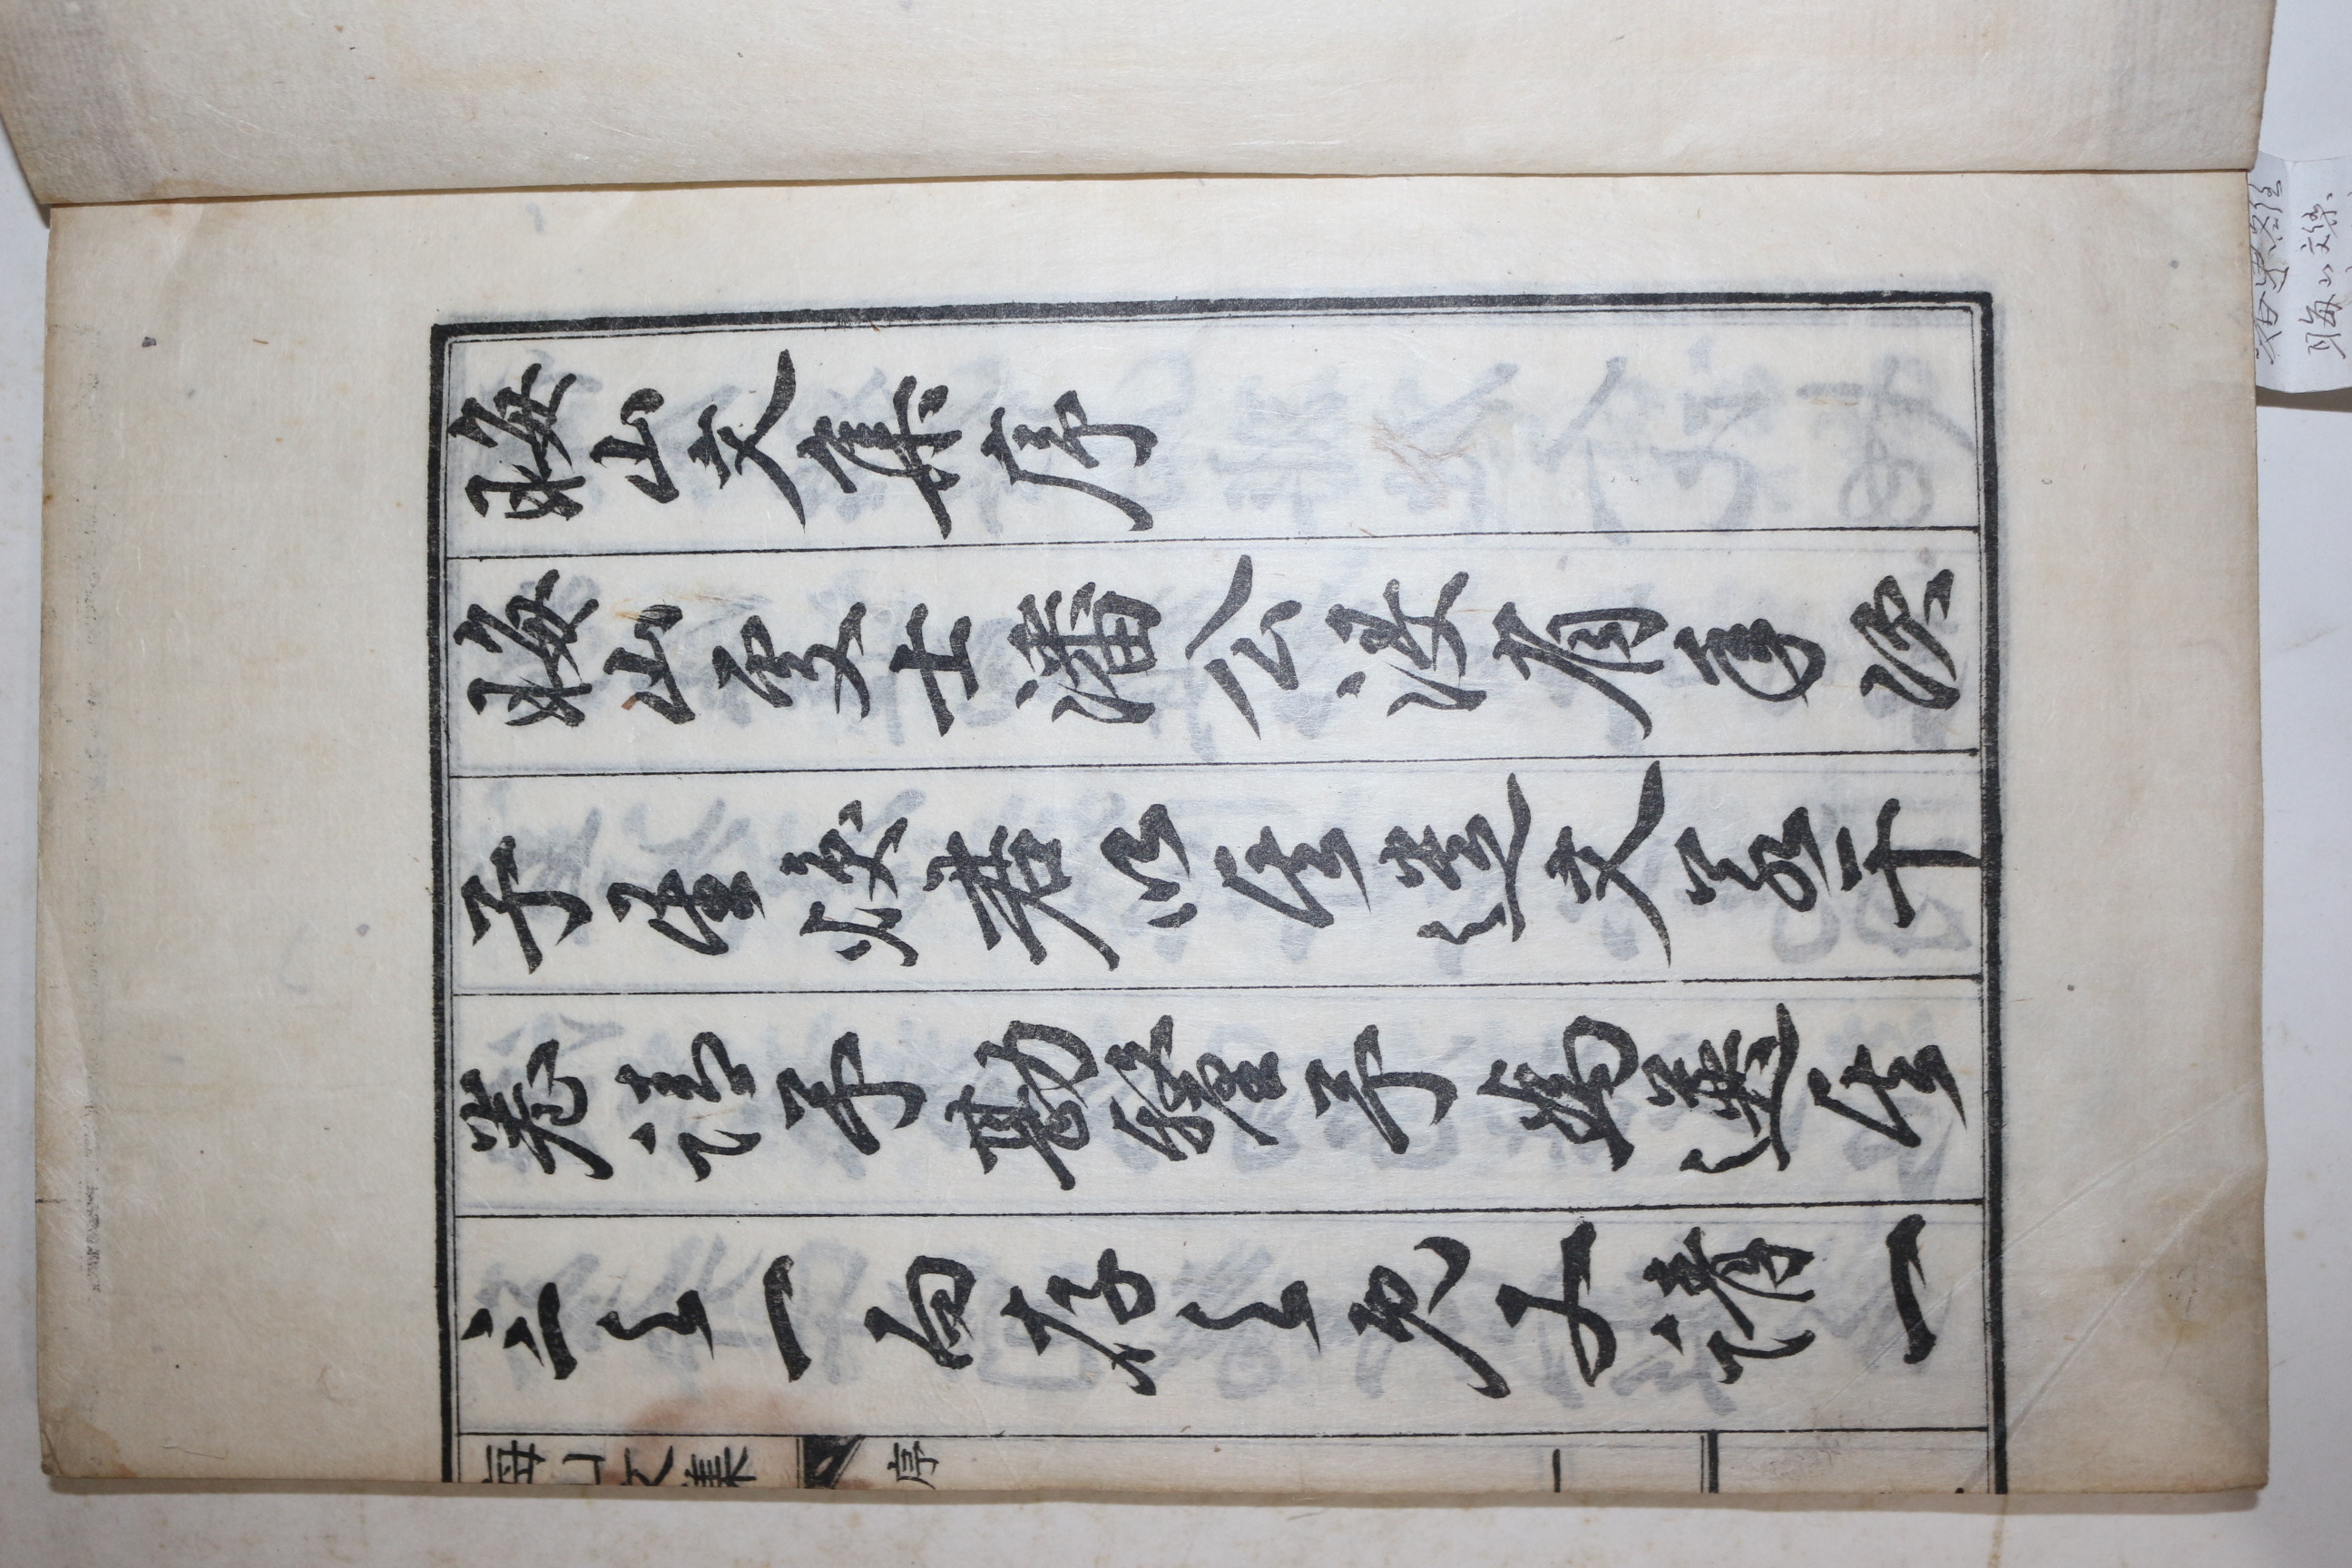 晦山文集序
晦山處士潘公沒有年次
子星煥君以其遺文若干
卷請予勘釐予爲選其
三之一而存之旣又請一
晦山文集 序 一
晦山文集